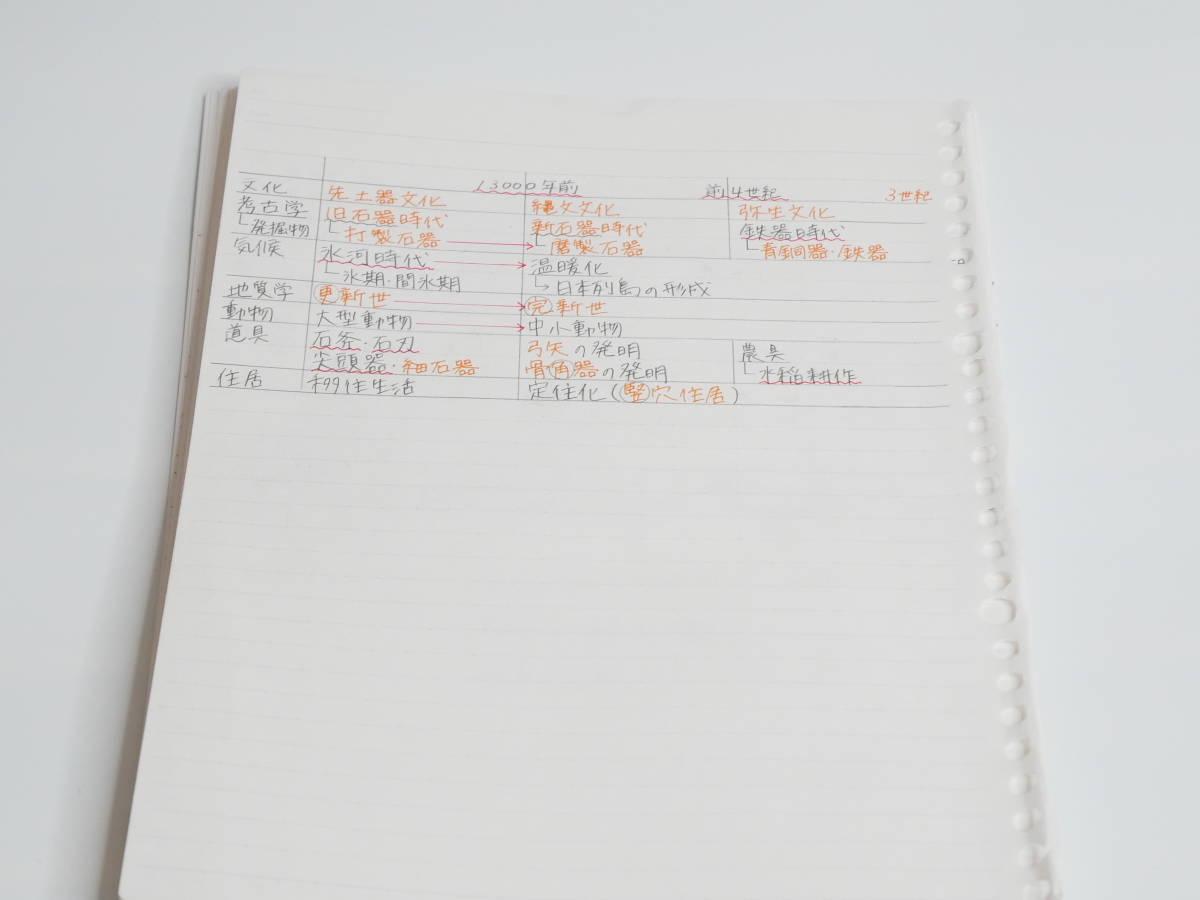 13000年前 前4世紀 3世紀
文化 先土器文化 縄文文化 弥生文化
考古学 旧石器時代 新石器時代 鉄器時代
└発掘物 └打製石器 → └磨製石器 └青銅器・鉄器
気候 氷河時代 → 温暖化
└氷期・間氷期 └→日本列島の形成
地質学 更新世 → 完新世
動物 大型動物 → 中小動物
道具 石斧・石刃 弓矢の発明 農具
尖頭器・細石器 骨角器の発明 └水稲耕作
住居 移住生活 定住化(竪穴住居)